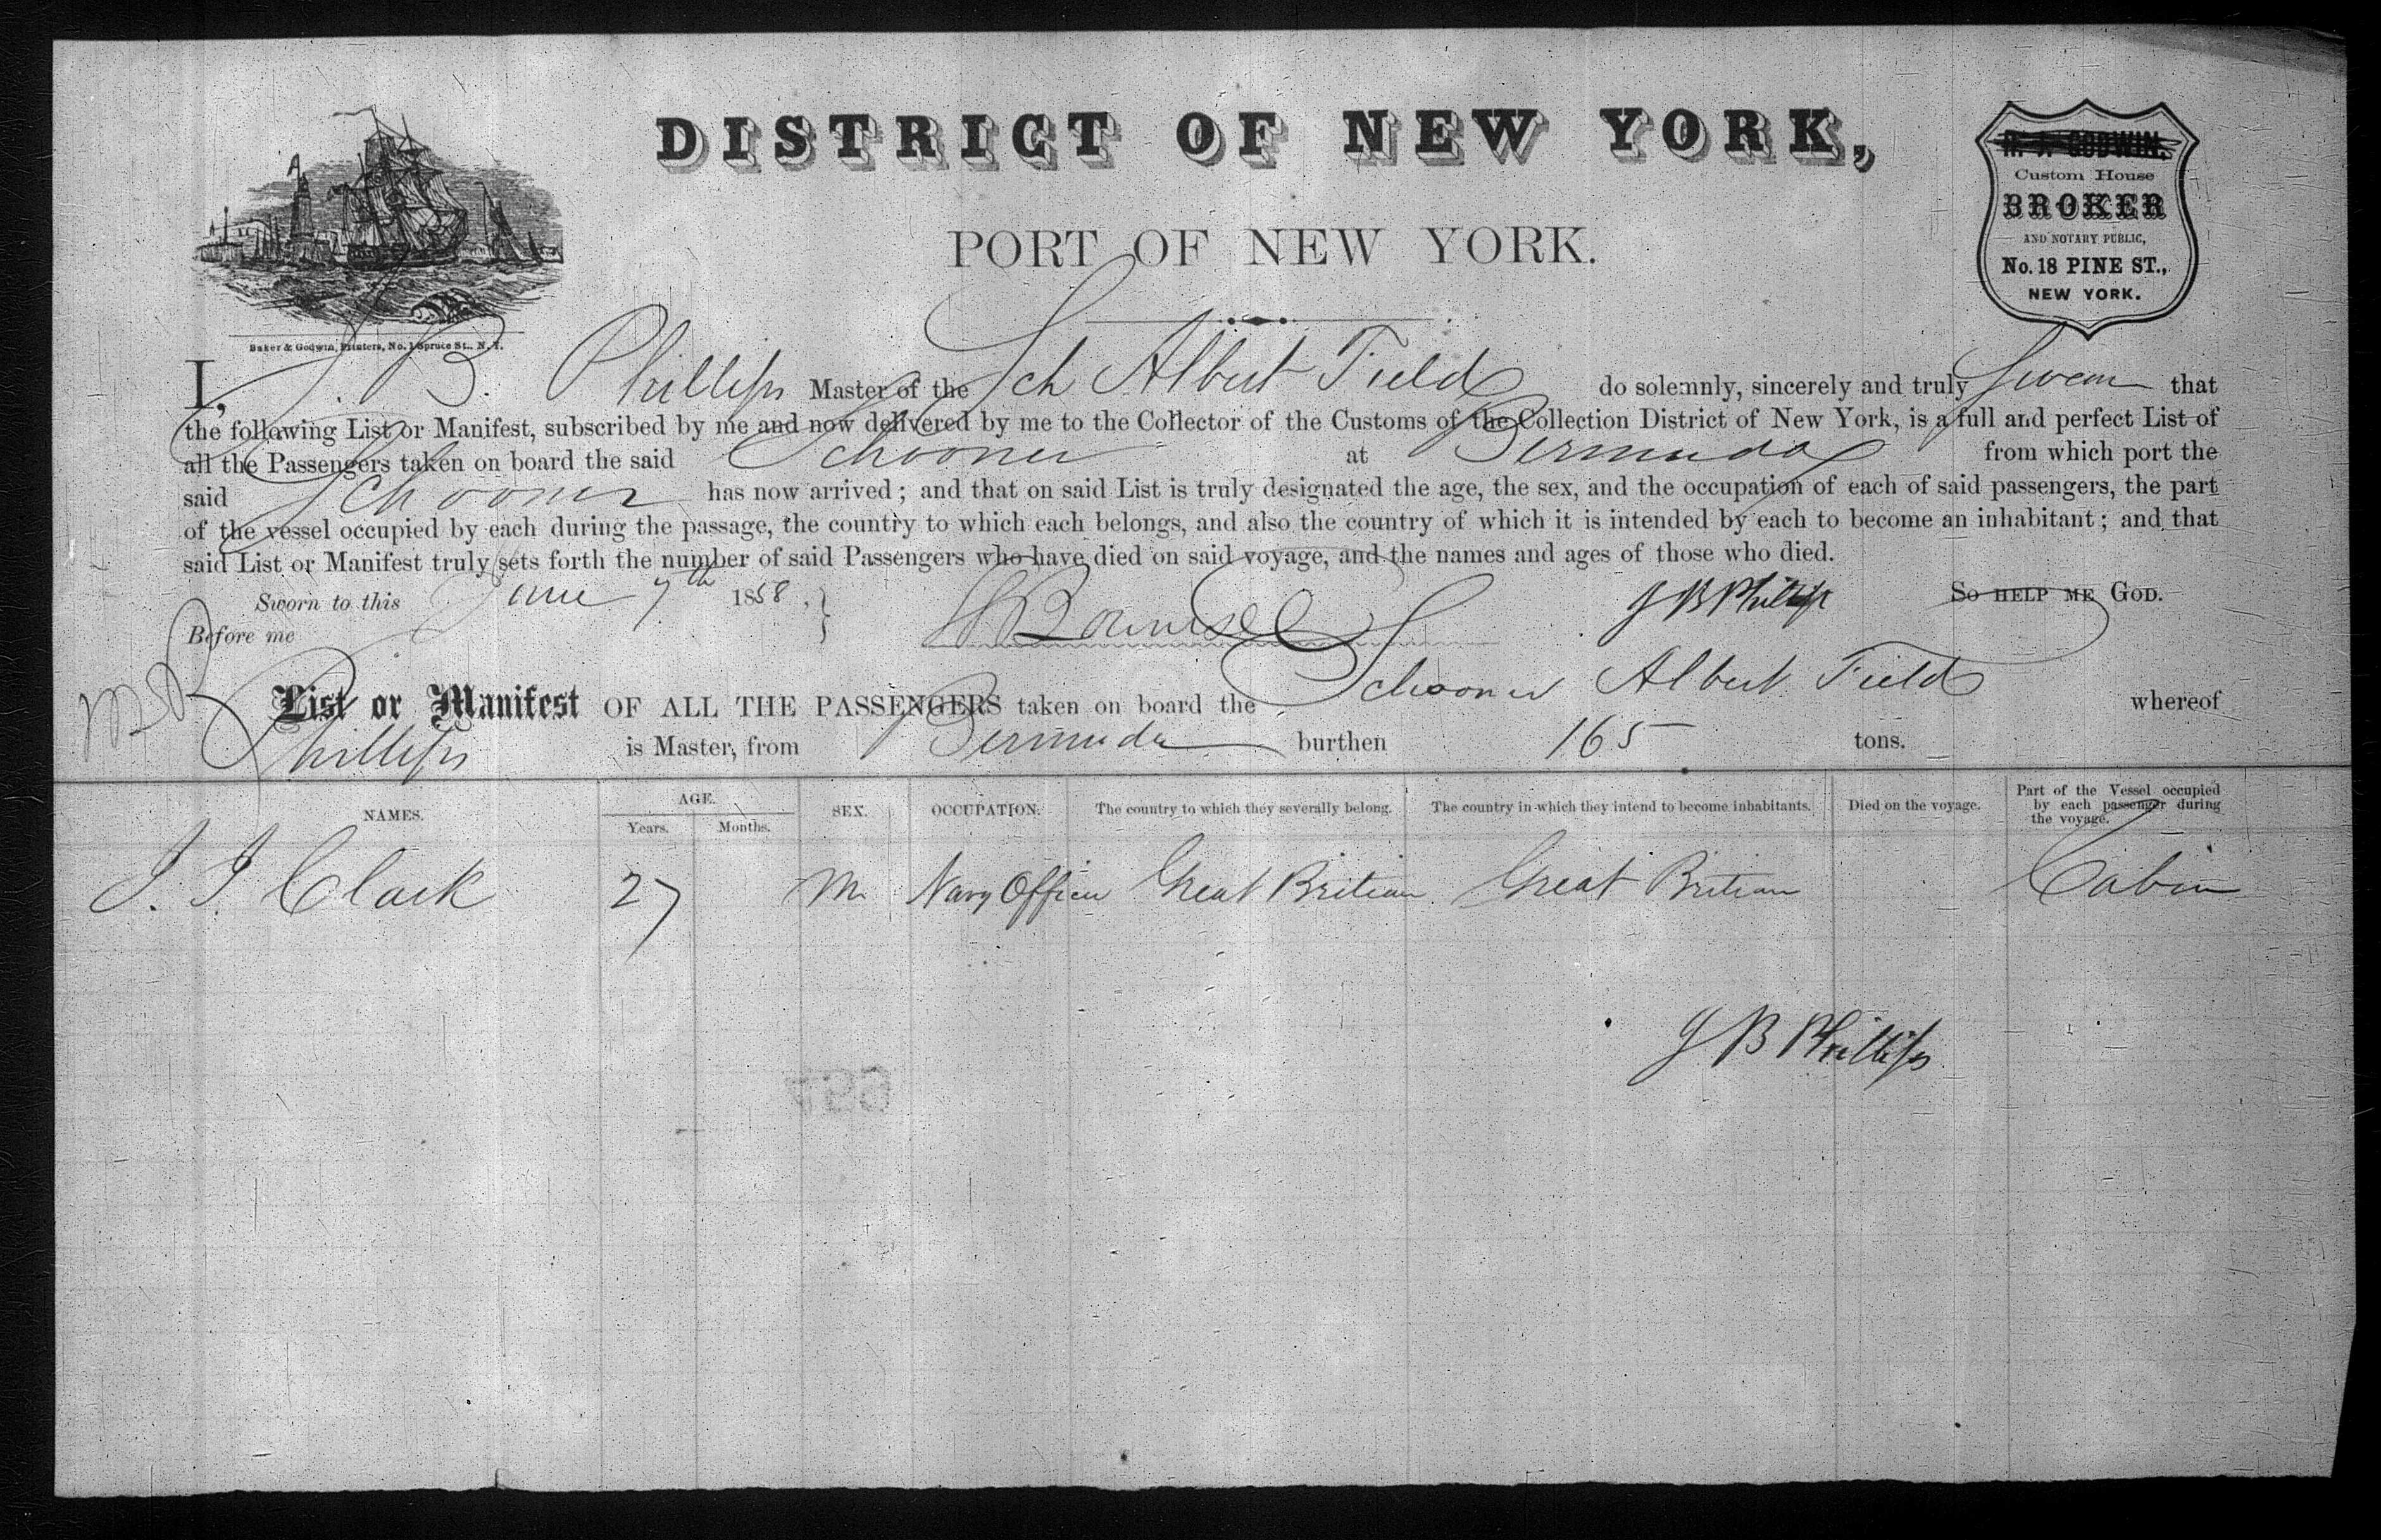 DISTRICT OF NEW YORK,
PORT OF NEW YORK.
GODWIN,
Custom House
BROKER
AND NOTARY PUBLIC,
No. 18 PINE ST.,
NEW YORK.
Baker & Godwin, Printers, No. 1 Spruce St., N. Y.
I, J. B. Phillips Master of the Sch Albert Field do solemnly, sincerely and truly Swear that
the following List or Manifest, subscribed by me and now delivered by me to the Collector of the Customs of the Collection District of New York, is a full and perfect List of
all the Passengers taken on board the said Schooner at Bermuda from which port the
said Schooner has now arrived; and that on said List is truly designated the age, the sex, and the occupation of each of said passengers, the part
of the vessel occupied by each during the passage, the country to which each belongs, and also the country of which it is intended by each to become an inhabitant; and that
said List or Manifest truly sets forth the number of said Passengers who have died on said voyage, and the names and ages of those who died.
Sworn to this June 7th 1858. J B Phillips SO HELP ME GOD.
Before me
List or Manifest OF ALL THE PASSENGERS taken on board the Schooner Albert Field whereof
Phillips is Master, from Bermuda burthen 165 tons.
NAMES. AGE. SEX. OCCUPATION. The country to which they severally belong. The country in which they intend to become inhabitants. Died on the voyage. Part of the Vessel occupied by each passenger during the voyage.
Years. Months.
J. J. Clark 27 M Navy Officer Great Britian Great Britian Cabin
J B Phillips